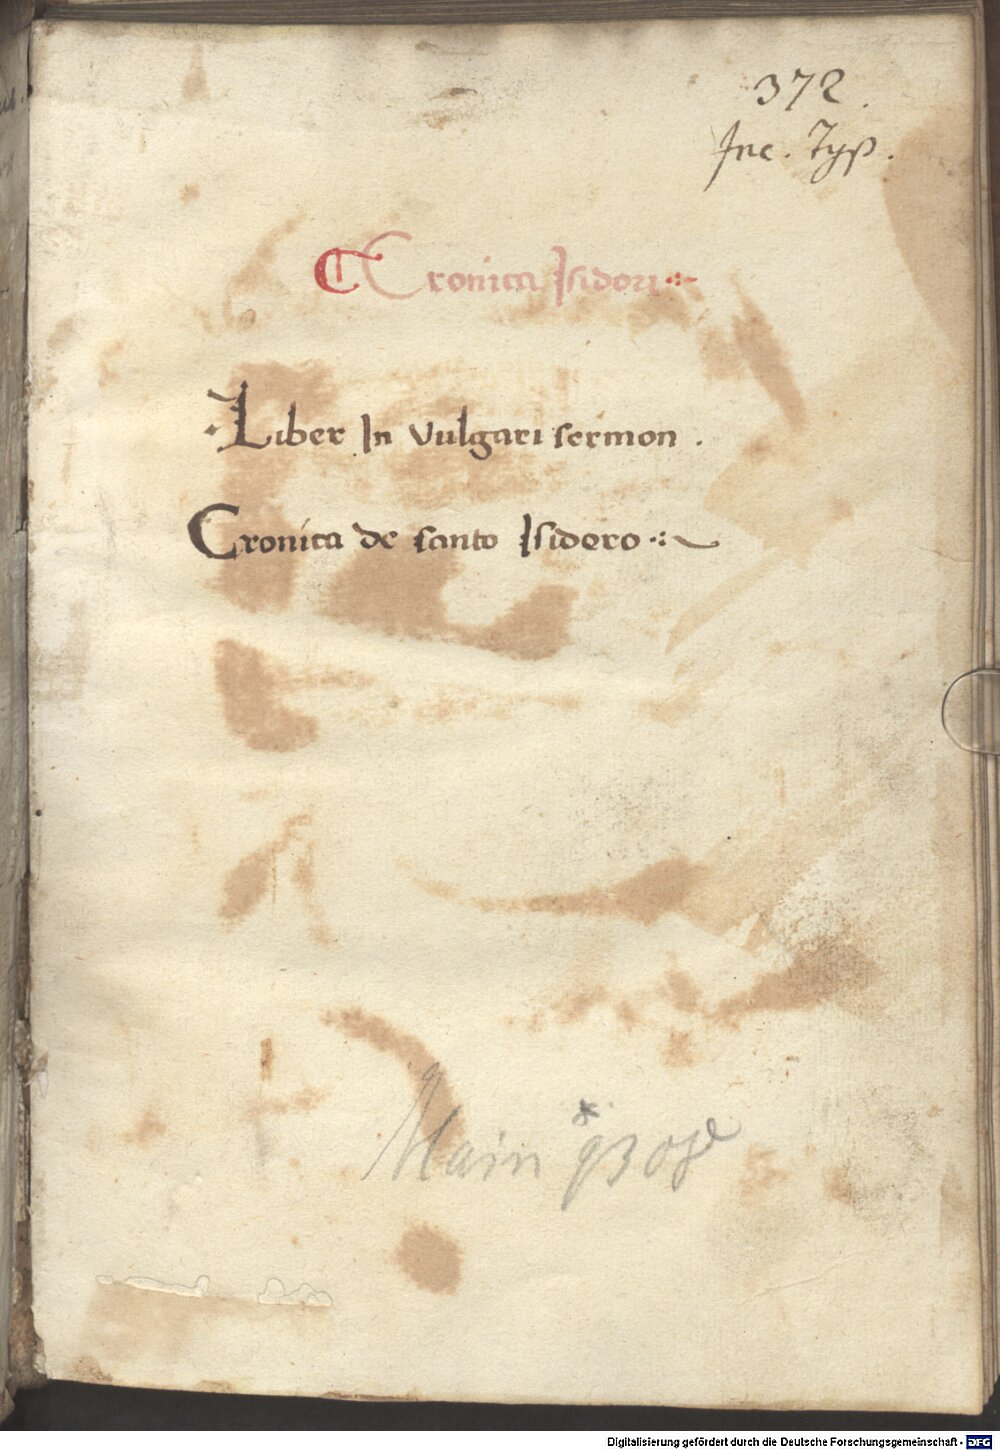 372.
Inc. Typ.
Cronica Isidori
Liber In vulgari sermon.
Cronica de santo Isidero
Main 9308
Digitalisierung gefördert durch die Deutsche Forschungsgemeinschaft - DFG